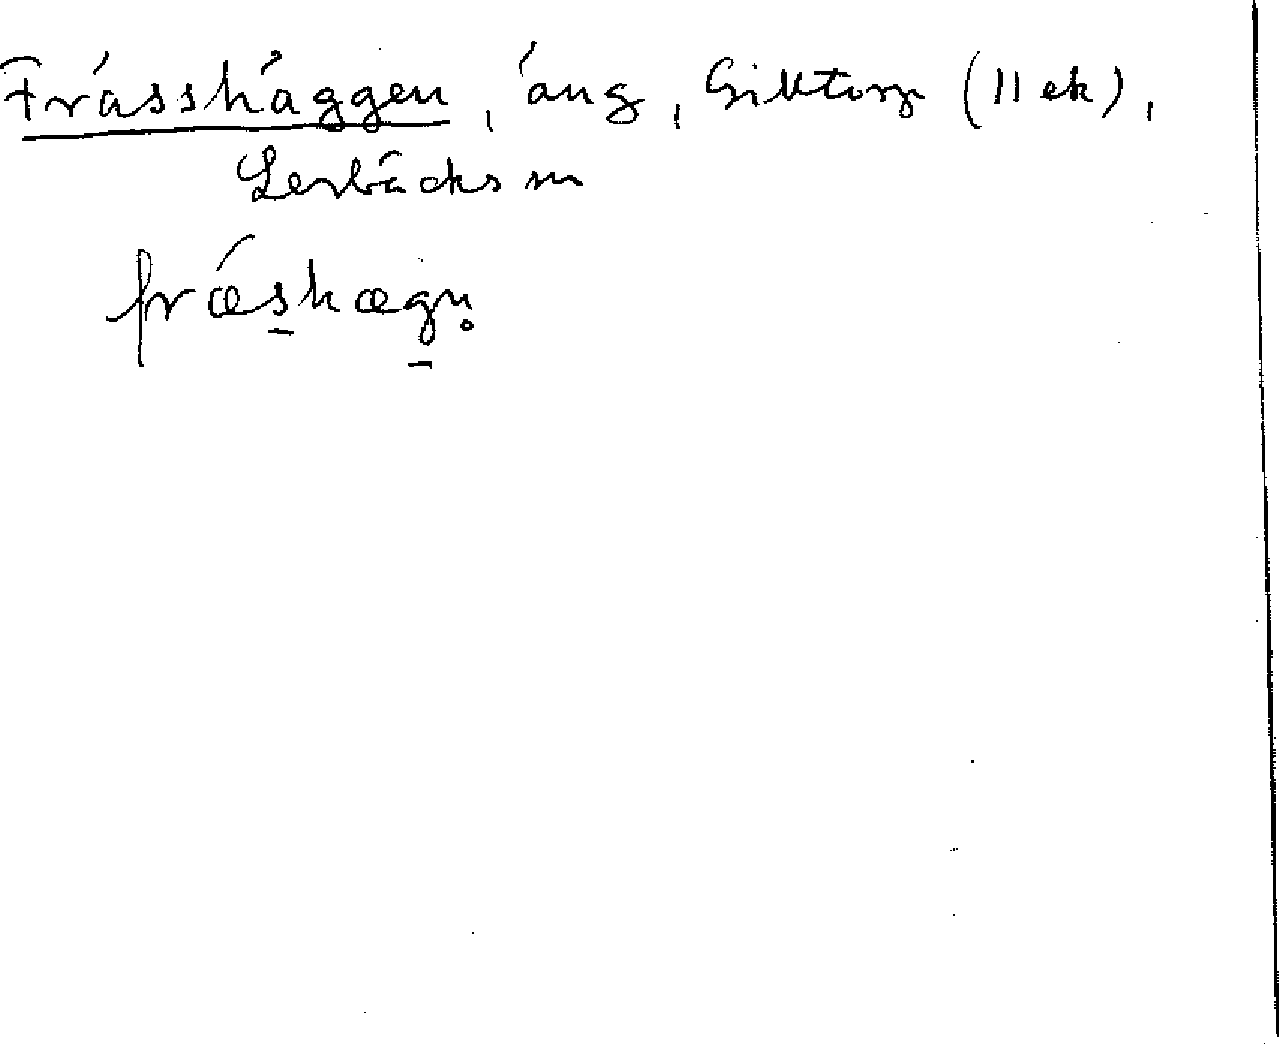 Frässhäggen, äng, Giktorp (11 ek),
Lerbäcks sn
fræshægn̥